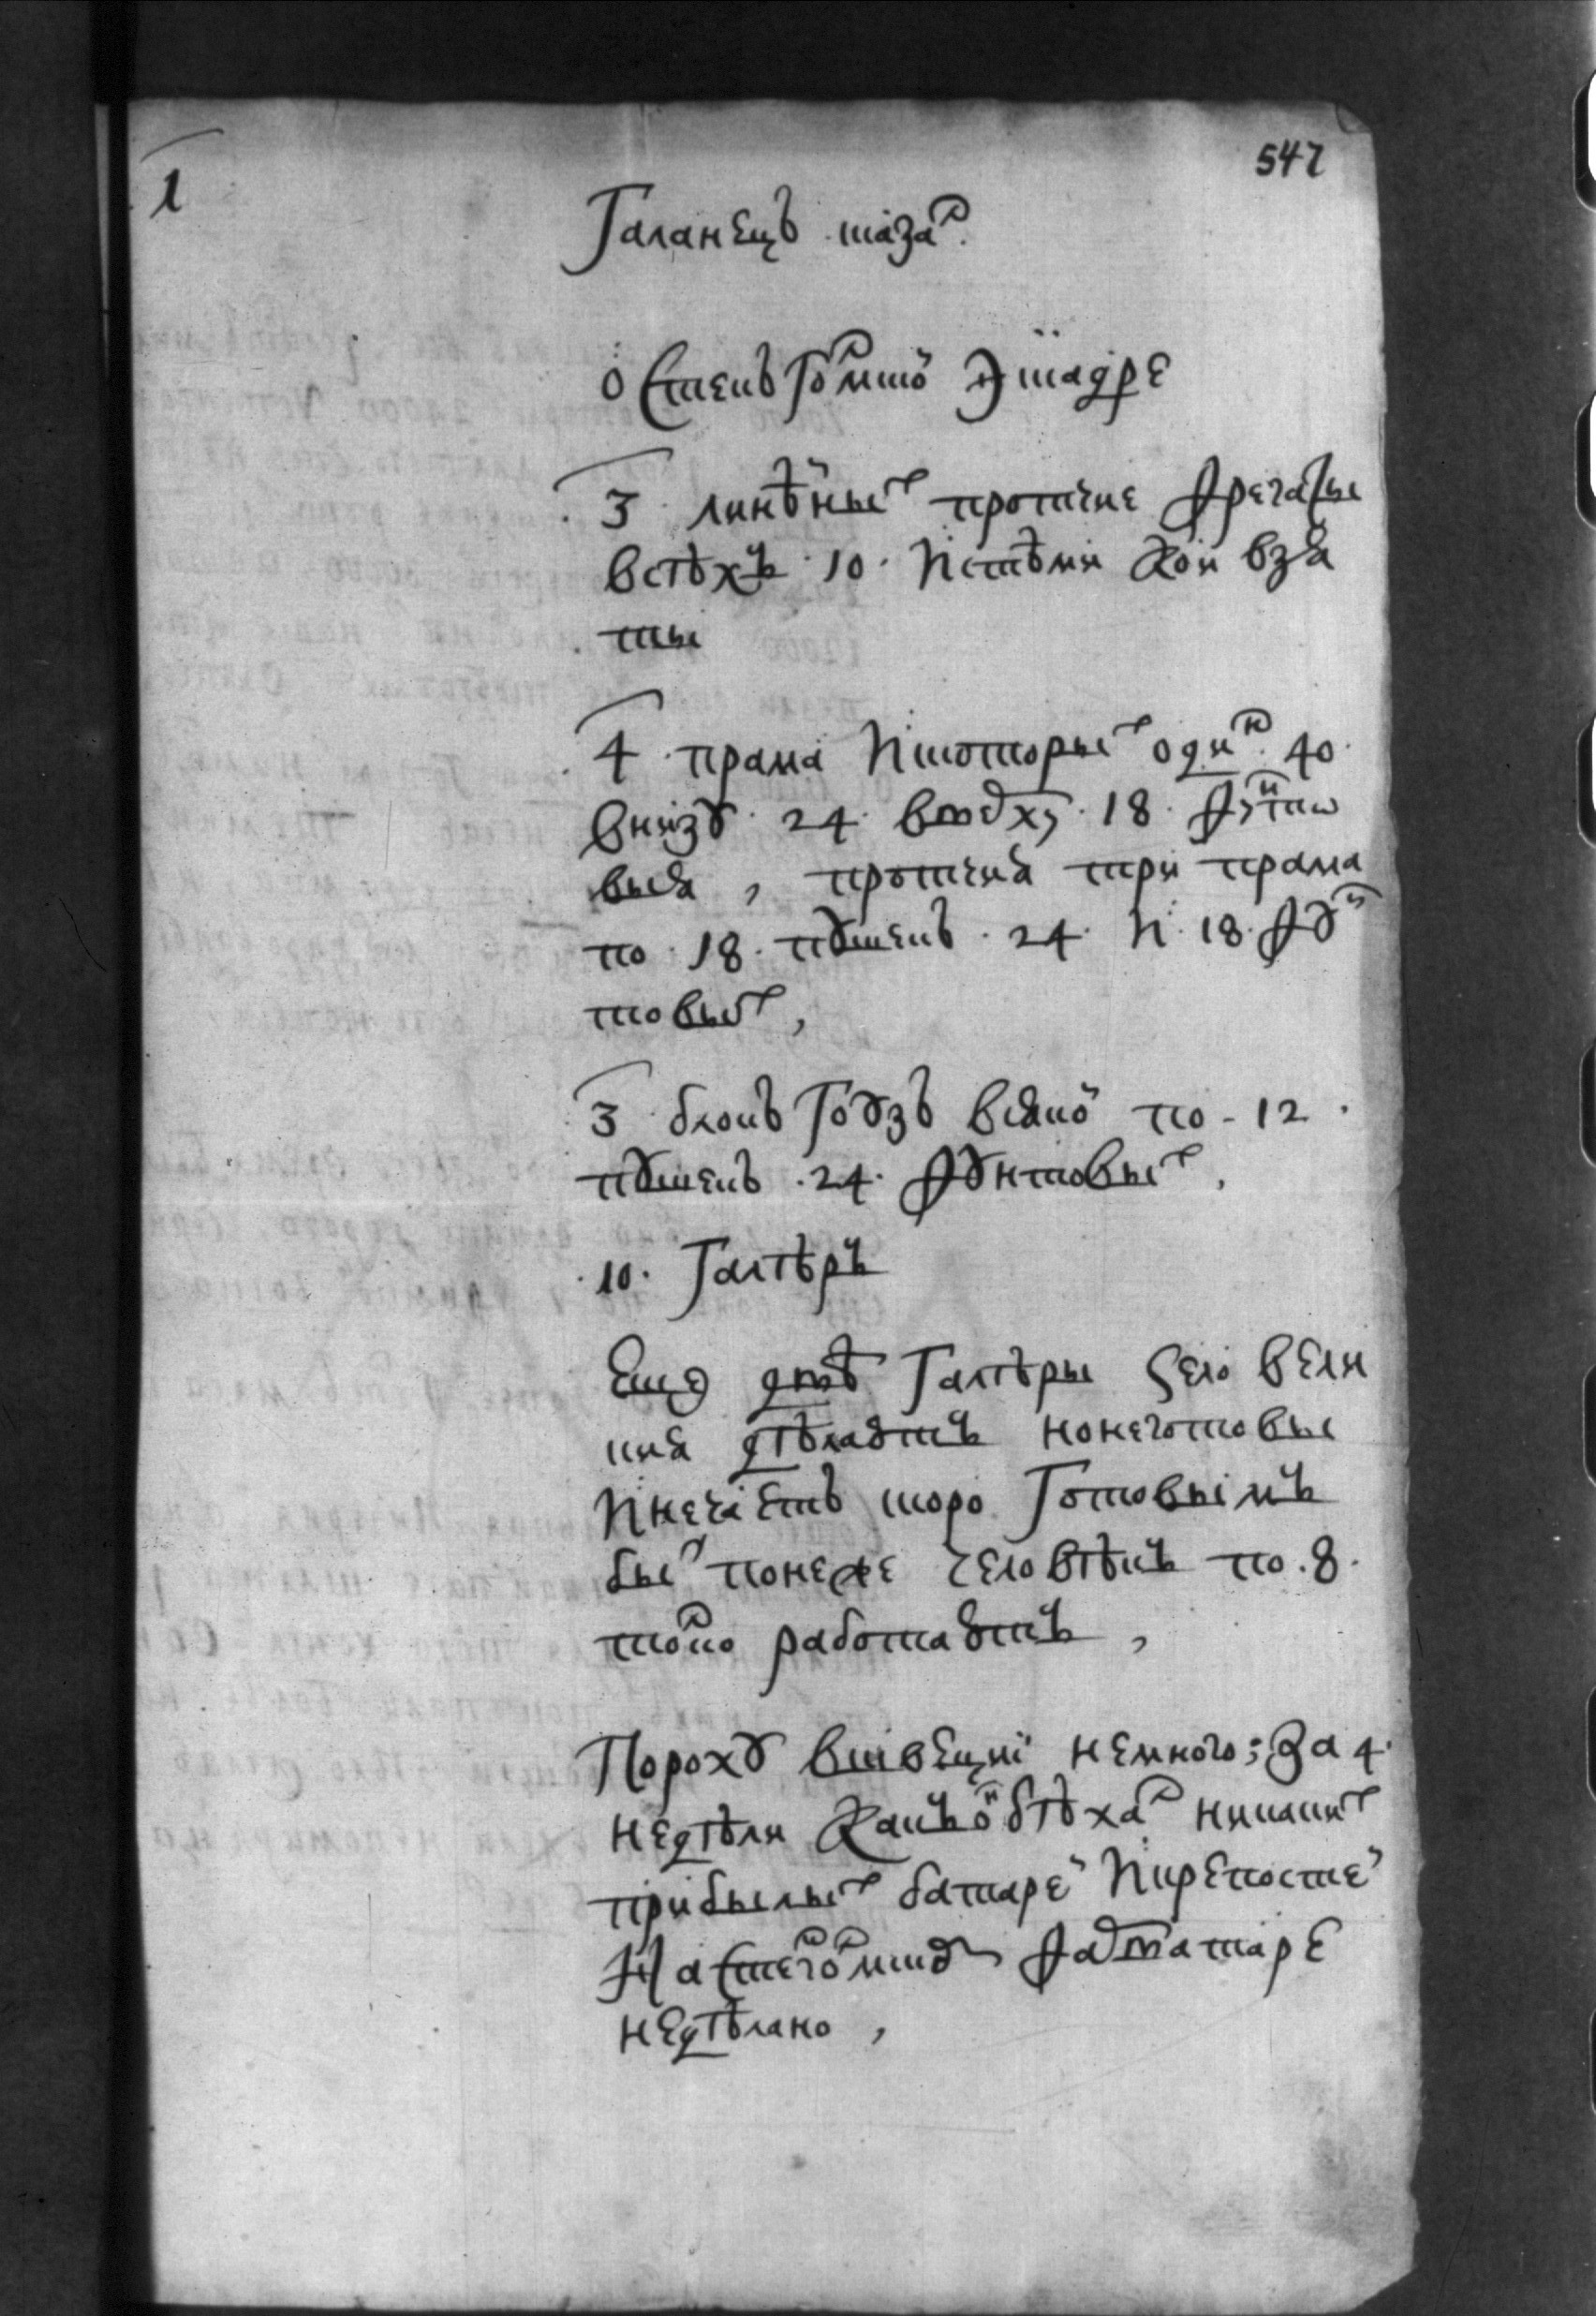 547
1
Галанецъ сказал
о стекъголмской эшкадре
3 линѣйных протчие фрегаты
всѣхъ 10 и стѣми кои взя
ты
4 прама ис которых один 40
внизу 24 вверху 18 фунто
выя, протчия три прама
по 18 пушекъ 24 и 18 фун
товых,
3 блокъгоузъ всякой по 12
пушекъ 24 фунтовых,
10 галѣръ
Еще двѣ галѣры зело вели
кия дѣлаютъ но неготовы
и нечаетъ скоро готовымъ
быт понеже человѣкъ по 8
толко работаютъ,
Пороху вшвеции немного; за 4
недѣли какъ он поѣхал никаких
прибылых батарей и крепостей
на стеголмском фарватаре
недѣлано,